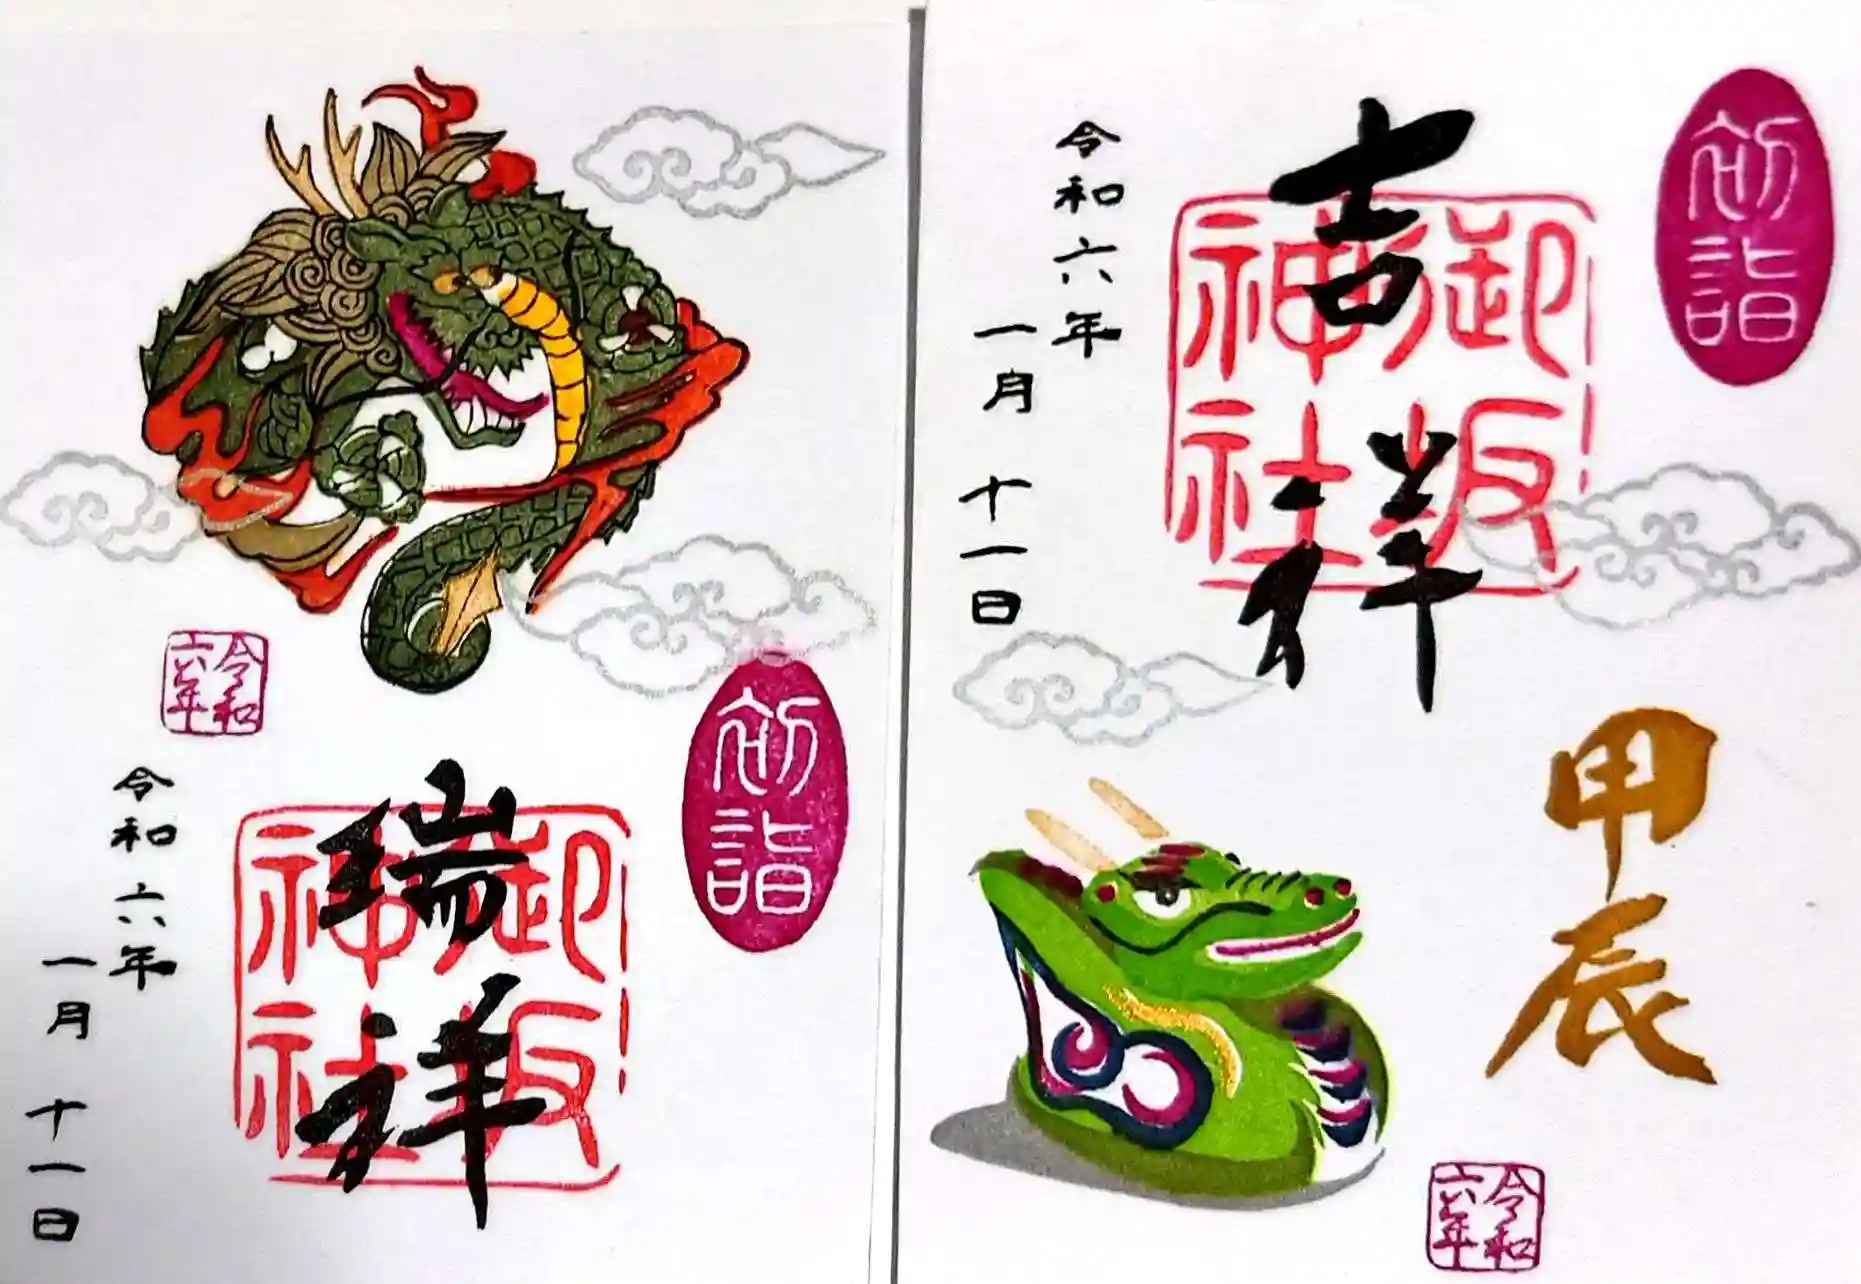 令和
六年
初詣
瑞祥
御坂
神社
令和六年
一月十一日
初詣
吉祥
御坂
神社
令和六年
一月十一日
甲辰
令和
六年